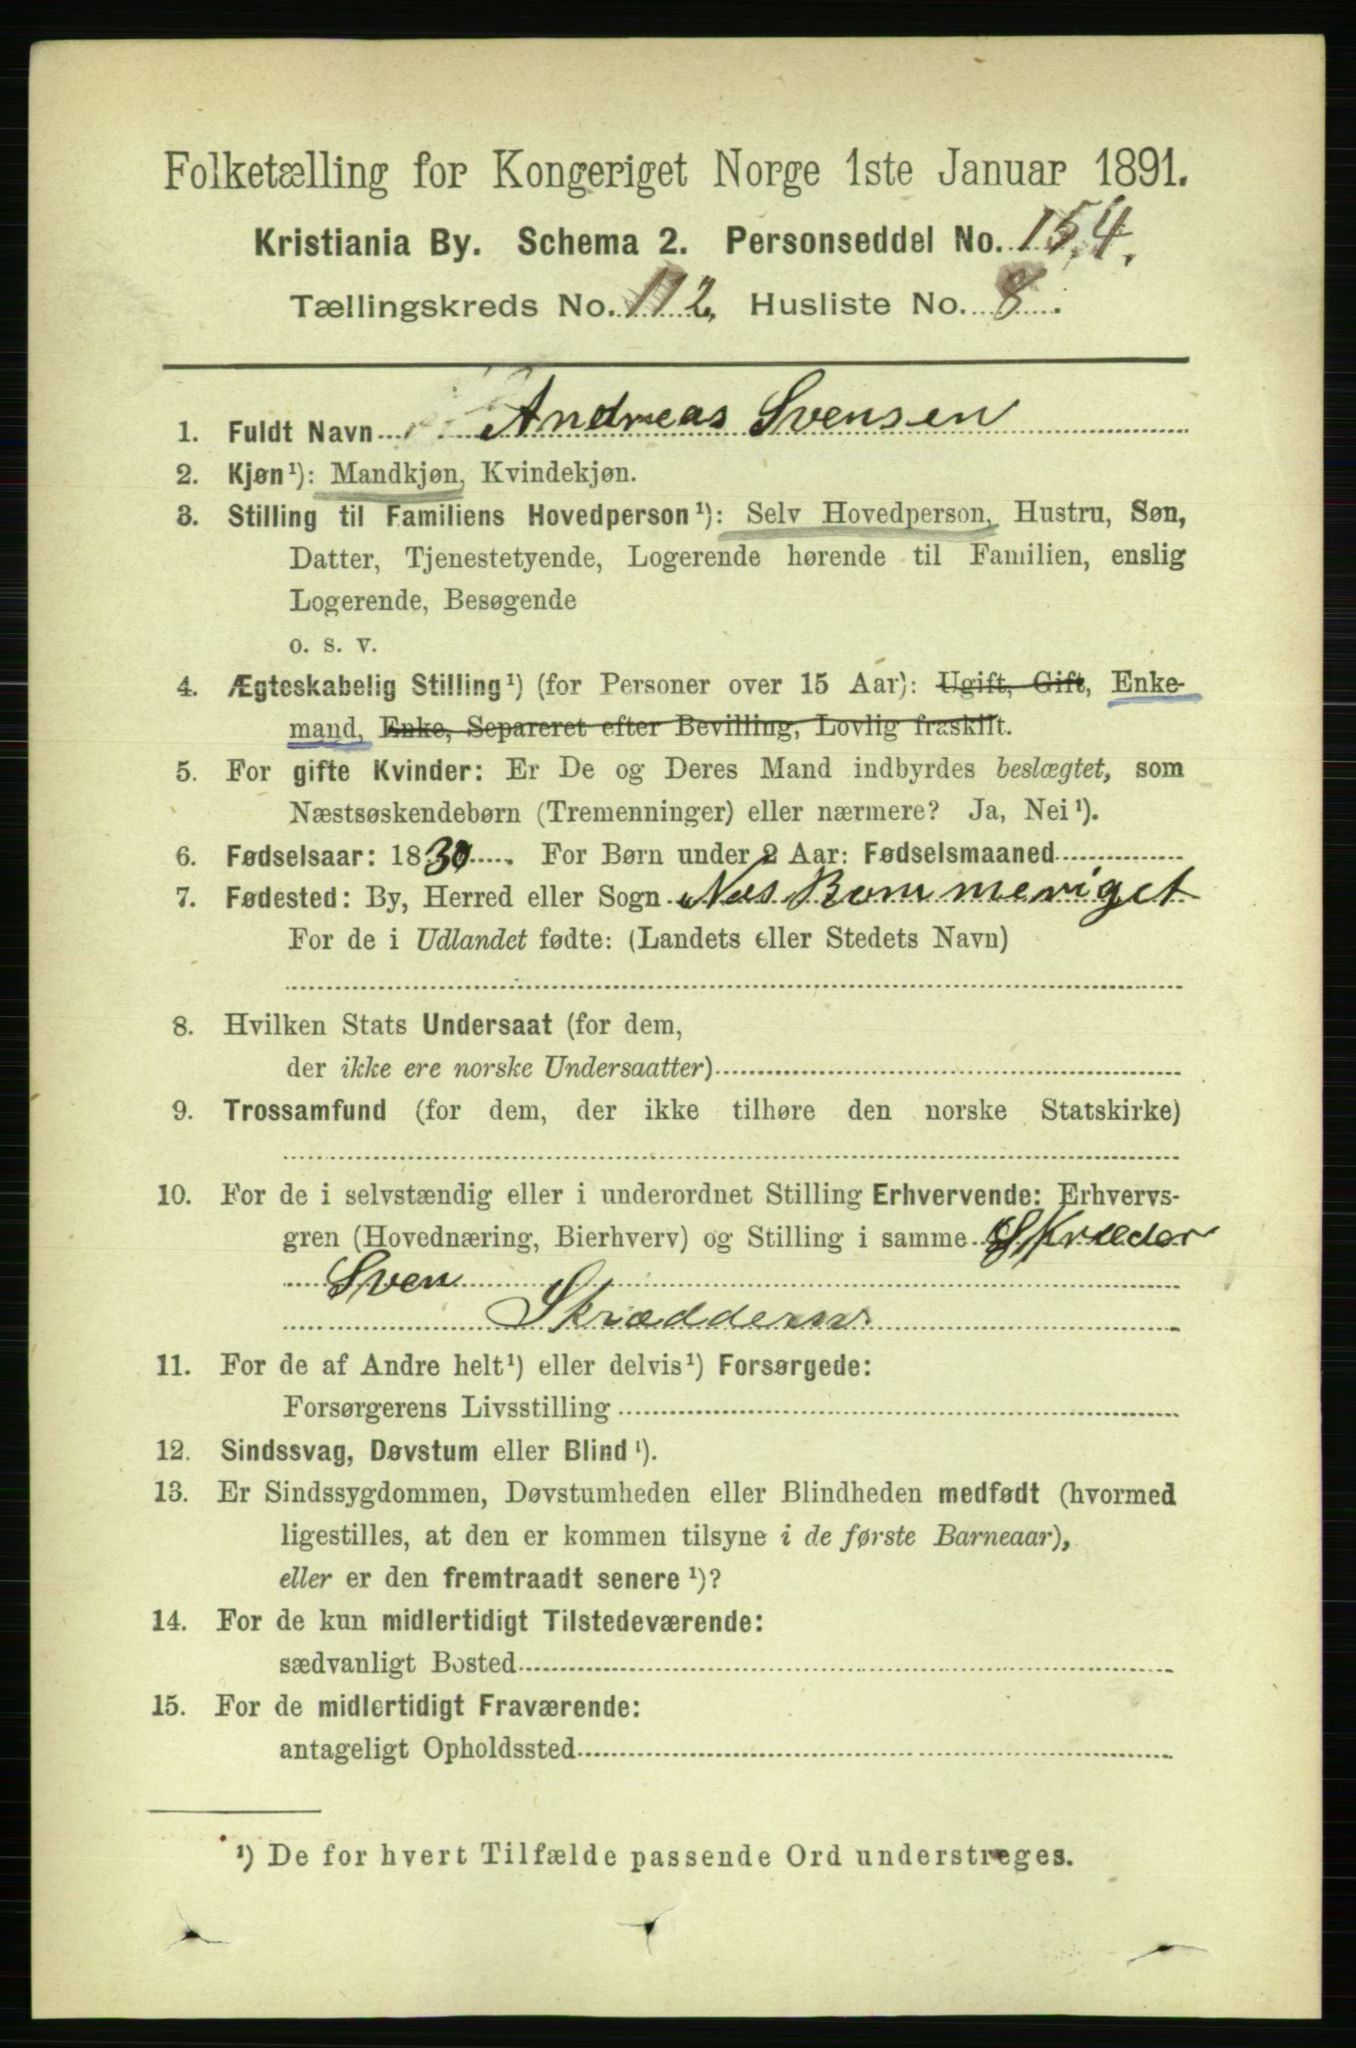 Folketælling for Kongeriget Norge 1ste Januar 1891.
Kristiania By. Schema 2. Personseddel No. 154.
Tællingskreds No. 112. Husliste No. 8.
1. Fuldt Navn Andreas Svensen
2. Kjøn¹): Mandkjøn, Kvindekjøn.
3. Stilling til Familiens Hovedperson¹): Selv Hovedperson, Hustru, Søn,
Datter, Tjenestetyende, Logerende hørende til Familien, enslig
Logerende, Besøgende
o. s. v.
4. Ægteskabelig Stilling¹) (for Personer over 15 Aar): Ugift, Gift, Enke-
mand, Enke, Separeret efter Bevilling, Lovlig fraskilt.
5. For gifte Kvinder: Er De og Deres Mand indbyrdes beslægtet, som
Næstsøskendebørn (Tremenninger) eller nærmere? Ja, Nei¹).
6. Fødselsaar: 1830. For Børn under 2 Aar: Fødselsmaaned
7. Fødested: By, Herred eller Sogn Nes Rommeriget
For de i Udlandet fødte: (Landets eller Stedets Navn)
8. Hvilken Stats Undersaat (for dem,
der ikke ere norske Undersaatter)
9. Trossamfund (for dem, der ikke tilhøre den norske Statskirke)
10. For de i selvstændig eller i underordnet Stilling Erhvervende: Erhvervs-
gren (Hovednæring, Bierhverv) og Stilling i samme Skræder
Sven
Skræddersv.
11. For de af Andre helt¹) eller delvis¹) Forsørgede:
Forsørgerens Livsstilling
12. Sindssvag, Døvstum eller Blind¹).
13. Er Sindssygdommen, Døvstumheden eller Blindheden medfødt (hvormed
ligestilles, at den er kommen tilsyne i de første Barneaar),
eller er den fremtraadt senere¹)?
14. For de kun midlertidigt Tilstedeværende:
sædvanligt Bosted
15. For de midlertidigt Fraværende:
antageligt Opholdssted
¹) De for hvert Tilfælde passende Ord understreges.